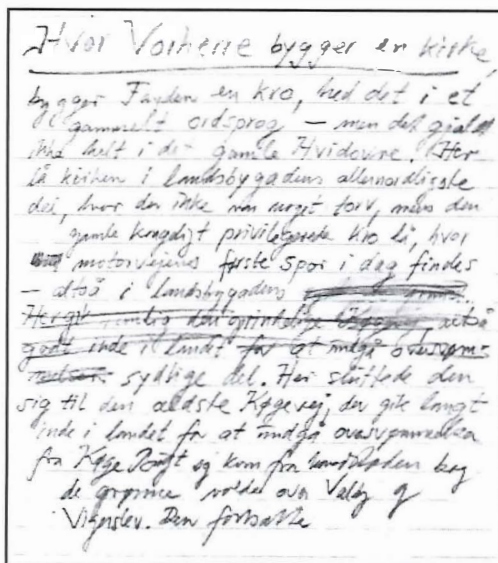 Hvor Vorherre bygger en kirke,
bygger Fanden en kro, hed det i et
gammelt ordsprog – men det gjaldt
ikke helt i det gamle Hvidovre. Her
lå kirken i landsbygadens allernordligste
del, hvor der ikke var noget torv, mens den
gamle kongeligt privilegerede kro lå, hvor
motorvejens første spor i dag findes
– altså i landsbygadens
Her gik nemlig den oprindelige Køgevej, altså
godt inde i landet for at undgå oversvøm-
melser. sydlige del. Her sluttede den
sig til den ældste Køgevej, der gik langt
inde i landet for at undgå oversvømmelser
fra Køge Bugt og kom fra hovedstaden bag
de grønne volde over Valby og
Vigerslev. Den fortsatte